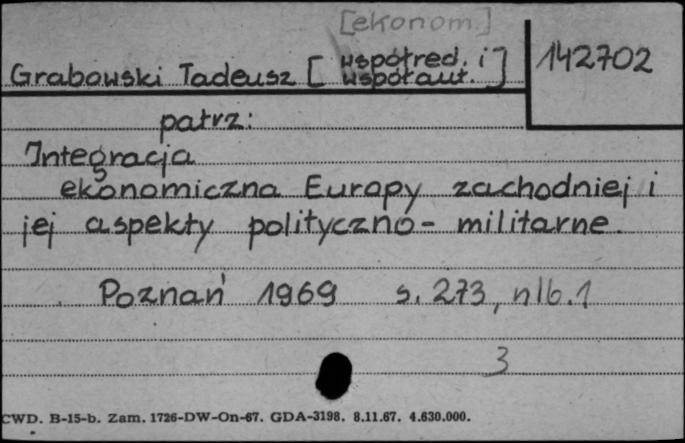 [ekonom.]
Grabowski Tadeusz [współred. i współaut.]
142702
patrz:
Integracja
ekonomiczna Europy zachodniej i
jej aspekty polityczno-militarne.
Poznań 1969 s. 273, nlb. 1
3
CWD. B-15-b. Zam. 1726-DW-On-67. GDA-3198. 8.11.67. 4.630.000.